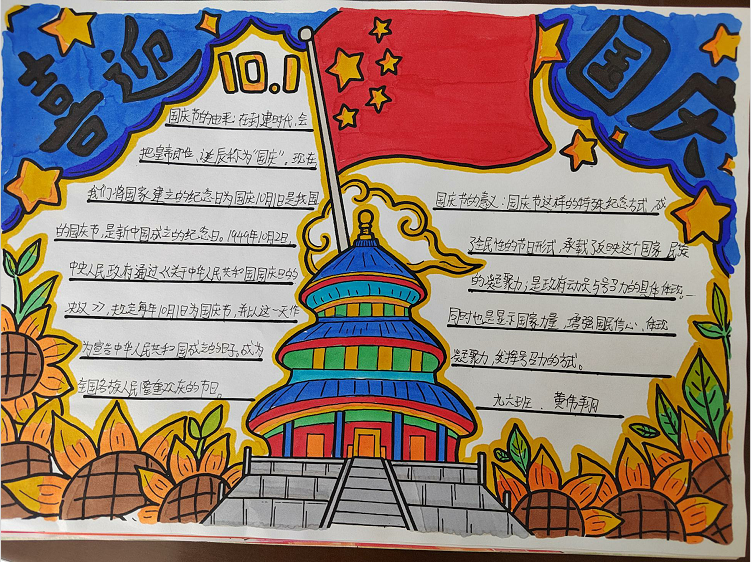 喜迎
国庆
10.1
国庆节的由来:在封建时代,会
把皇帝即位、诞辰称为"国庆"。现在
我们将国家建立的纪念日为国庆10月1日是我国
的国庆节,是新中国成立的纪念日。1949年10月2日,
中央人民政府通过《关于中华人民共和国国庆日的
决议》,规定每年10月1日为国庆节,并以这一天作
为宣告中华人民共和国成立的日子。成为
全国各族人民隆重欢庆的节日。
国庆节的意义:国庆节这样的特殊纪念方式,成
了全民性的节日形式,承载了反映这个国家、民族
的凝聚力;是政府动员与号召力的具体体现。
同时也是显示国家力量、增强国民信心,体现
凝聚力,发挥号召力的方式。
九六班 黄伟